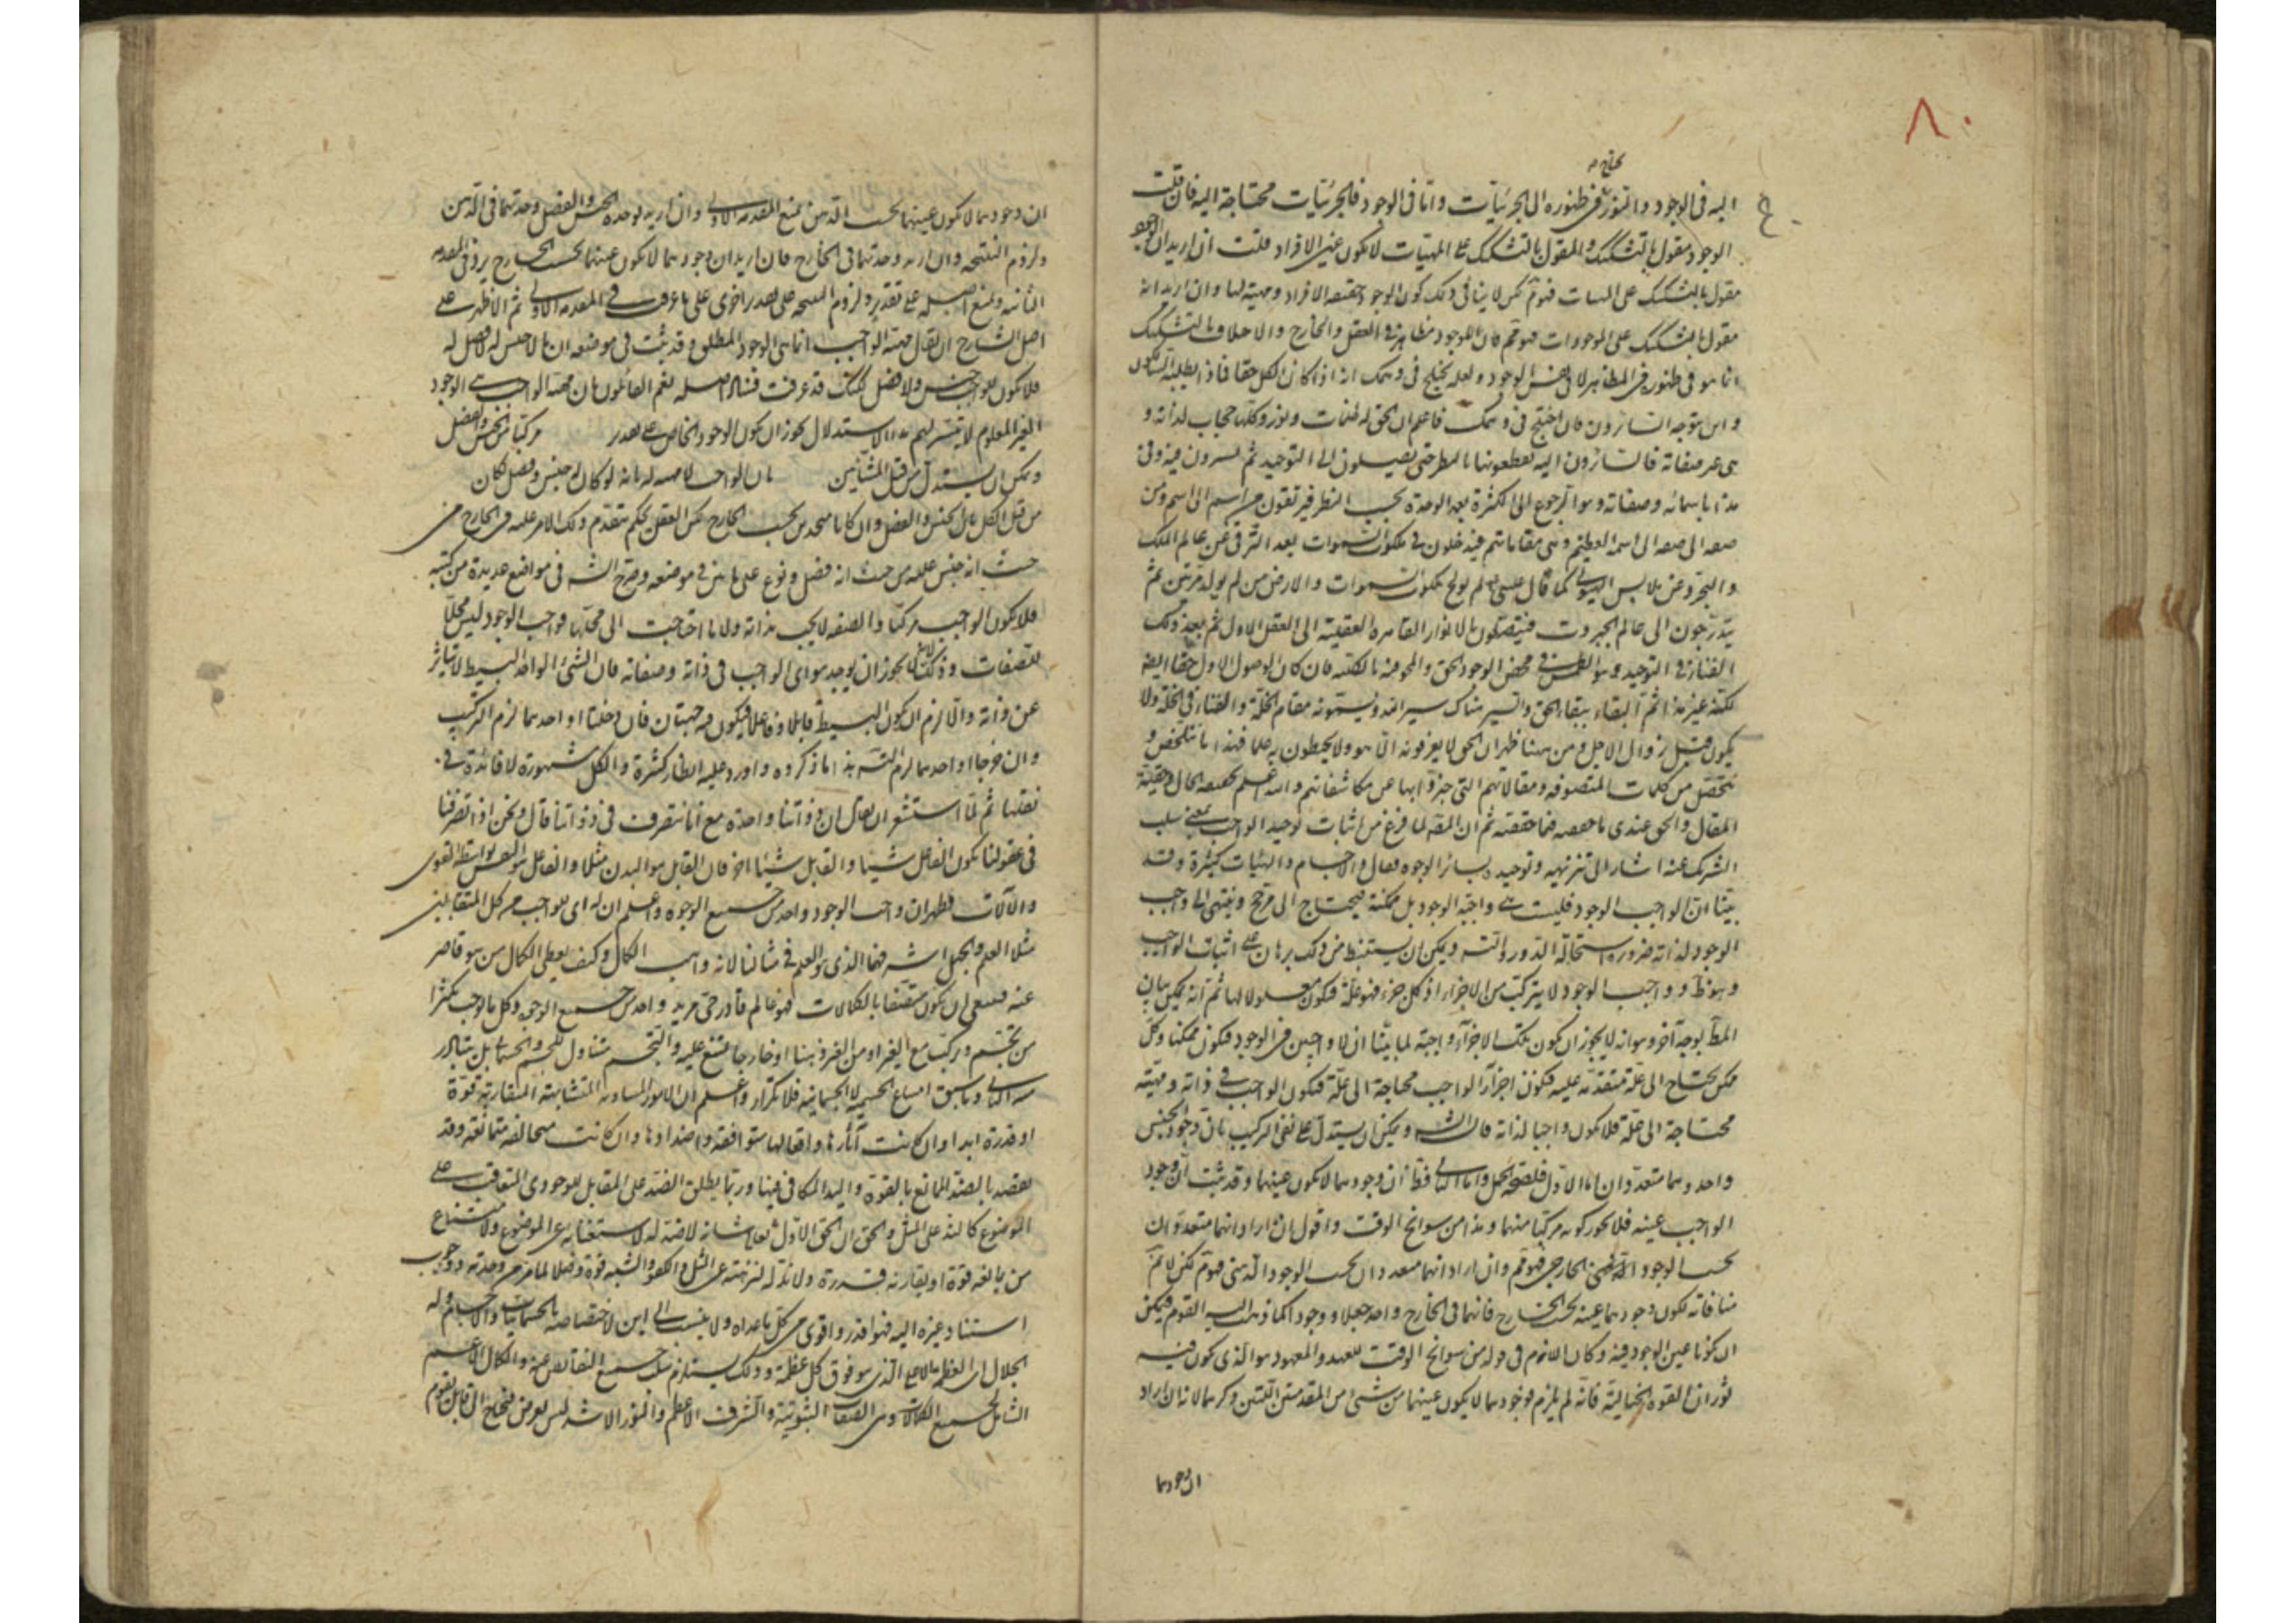 ٨٠
يحتاج
اليه فى الوجود والنور فى ظهوره الى الجزئيات واما فى الوجود فالجزئيات محتاجة اليه فان قلت
الوجود مقول بالتشكيك والمقول بالتشكيك على المهيات لا يكون عين الافراد قلت ان اريد ان الوجود
مقول بالتشكيك على المهيات فهو لكن لا ينافى ذلك كون الوجود حقيقة الافراد ومهية لها وان اريد انه
مقول بالتشكيك على الموجودات فهو فان للوجود مظاهر فى العقل والخارج والاختلاف بالتشكيك
انما هو فى ظهوره فى المظاهر لا فى نفس الوجود ولعله يختلج فى وهمك انه اذا كان الكل حقا فماذا يطلبه السالكون
واين يتوجه السائرون فان اختلج فى وهمك فاعلم ان الحق له ظلمات ونور وكلها حجاب لذاته و
هى غير صفاته فالسائرون اليه يقطعونها بالنظر حتى يصلون الى التوحيد ثم يسيرون فيه وفى
هذا باسمائه وصفاته وهو الرجوع الى الكثرة بعد الوحدة بحسب النظر فيرتقون من اسم الى اسم ومن
صفة الى صفة الى اسمه العظيم وهى مقاماتهم فيدخلون فى ملكوت السموات بعد الترقى عن عالم الملك
والتجرد عن ملابس الهيولى كما قال عيسى لم يولج ملكوت السموات والارض من لم يولد مرتين ثم
يتدرجون الى عالم الجبروت فيتصلون بالانوار القاهرة العقلية الى العقل الاول ثم بعد ذلك
الفناء فى التوحيد وهو الطمس فى محض الوجود الحق والمحو فيه بالكلية فان كان الوصول الاول حقا ايضا
لكنه غير هذا ثم البقاء ببقاء الحق والسير هناك سير الله ويسمونه مقام الخلة والفناء فى الخلة ولا
يكون قبل زوال الاجل ومن ههنا ظهر ان الحق لا يعرفونه الا هو ولا يحيطون به علما فهذا ما يتلخص و
يتحصل من كلمات المتصوفة ومقالاتهم التى جزوا بها عن مكاشفاتهم والله اعلم بحقيقة الحال وحقية
المقال والحق عندى ما حققته ثم ان المص لما فرغ من اثبات توحيد الواجب بمعنى سلب
الشريك عنه اشار الى تنزيهه وتوحيده بسائر الوجوه فقال والاجسام والهيئات كثيرة وقد
بينا ان الواجب الوجود فليست هى واجبة الوجود بل ممكنة فيحتاج الى مرجح وينتهى الى واجب
الوجود لذاته ضرورة استحالة الدور والتسه ويمكن ان يستنبط من ذلك برهان على اثبات الواجب
وهو ظ وواجب الوجود لا يتركب من الاجزاء اذ كل جزء فهو علة فيكون معلولا لها ثم انه يمكن بيان
المط بوجه آخر وهو انه لا يجوز ان يكون تلك الاجزاء واجبة لما بينا ان لا واجبين فى الوجود فيكون ممكنا وكل
ممكن يحتاج الى علة متقدمة عليه فيكون اجزاء الواجب محتاجة الى علة فيكون الواجب فى ذاته ومهيته
محتاجة الى علة فلا يكون واجبا لذاته قال الشه ويمكن ان يستدل على نفى التركيب بان وجود الجنس
واحد وهما متعددان اما الاول فلصحة الحمل واما الثانى فظ ان وجودهما لا يكون عينهما وقد ثبت ان وجود
الواجب عينه فلا يجوز كونه مركبا منهما وهذا من سوانح الوقت واقول ان اراد انهما متعددان
بحسب الوجود الخارجى فهو مم وان اراد انهما متعددان بحسب الوجود الذهنى فهو م لكن لا ثم
منافاته لكون وجودهما عينه بحسب الخارج فانهما فى الخارج واحد جعلا ووجودا كما ذهب اليه القوم فيمكن
ان كونا عين الوجود فيه وكان اللازم فى قوله من سوانح الوقت للعهد والمعهود هو الذى يكون فيه
ثوران القوة الخيالية فانه لم يلزم وجودهما لا يكون عينهما من شئ من المقدمتين اللتين ذكرهما لانه ان اراد
ان وجودهما
ان وجودهما لا يكون عينهما بحسب الذهن نمنع المقدمة الاولى وان اريد بوحدة الجنس والفصل وحدتهما فى الذهن
ولزوم النتيجة وان اريد وحدتهما فى الخارج فان اريد ان وجودهما لا يكون عينهما بحسب الخارج يرد فى المقدمة
الثانية ولمنع اصله على تقدير ولزوم النتيجة على تقدير اخرى على ما عرفت فى المقدمة الاولى ثم الاظهر على
اصل الشارح ان يقال مهية الواجب انما هى الوجود المطلق وقد ثبت فى موضعه ان ما لا جنس له لا فصل له
فلا يكون للواجب جنس ولا فصل لكنك قد عرفت فساد اصله نعم القائلون بان مهية الواجب هى الوجود
الغير المعلوم لا يتيسر لهم هذا الاستدلال لجواز ان يكون الوجود الخاص على تقدير مركبا من الجنس والفصل
ويمكن ان يستدل من قبل المشائين بان الواجب لا مهية له بانه لو كان له جنس وفصل لكان
من قبل الكل بان الجنس والفصل وان كانا متحدين بحسب الخارج لكن العقل يحكم بتقدم ذلك الامر عليه فى الخارج من
حيث انه جنس عليه من حيث انه فصل ونوع على ما بين فى موضعه وصرح الشه فى مواضع عديدة من كتبه
فلا يكون الواجب مركبا والصفة لا يجب بذاته ولا ما احتاجت الى محلها فواجب الوجود ليس محلا
للصفات وذلك لما لا يجوز ان يوجد هو اى الواجب فى ذاته وصفاته فان الشئ الواحد البسيط لا يتاثر
عن ذاته والا لزم ان يكون البسيط قابلا وفاعلا فيكون فيه جهتان فان دخلتا او احدهما لزم التركيب
وان خرجا او احدهما لزم التسه هذا ما ذكروه واورد عليه انظار كثيرة والكل مشهورة لا فائدة فى
نقلها ثم لما استشعر ان يقال ان ذواتنا واحدة مع انا نتصرف فى ذواتنا قال ونحن اذا تصرفنا
فى عقولنا يكون الفاعل شيئا والقابل شيئا اخر فان القابل هو البدن مثلا والفاعل هو النفس بواسطة القوى
والالات فظهر ان واجب الوجود واحد من جميع الوجوه واعلم ان له اى للواجب من كل المتقابلين
مثلا العلم والجهل اشرفهما الذى هو العلم فى مثالنا لانه واهب الكمال وكيف يعطى الكمال من هو قاصر
عنه فينبغى ان يكون متصفا بالكمالات فهو عالم قادر حى مريد واحد من جميع الوجوه وكل ما يوجب تكثرا
من تجسم وتركيب مع الغير او من الغير ذهنا او خارجا يمتنع عليه والتجسم متناول للجسم والجسمانى بل يتبادر
منه الثانى وما سبق امتناع الجسمية لا الجسمانية فلا تكرار واعلم ان الامور المساوية المتشابهة المتقاربة قوة
او قدرة ابدا وان كانت آثارها وافعالها متوافقة واضدادها وان كانت متخالفة متمانعة وقد
يقصد بالضد الممانع بالقوة والند المكافى فيها وربما يطلق الضد على المقابل الوجودى المتعاقب على
الموضوع كالند على المثل والحق ان الحق الاول تعالى شانه لا ضد له لاستغنائه عن الموضوع ولامتناع
من يمانعه قوة او يقاربه قدرة ولا ند له لتنزهه عن المثل والكفو والشبه قوة وفعلا لما مر من وحدته ووجوب
استناد غيره اليه فهو اقدر واقوى من كل ما عداه ولا ينسب الى اين لاختصاصه بالجسمانيات والاجسام وله
الجلال اى العظمة الاعلى الذى هو فوق كل عظمة وذلك يستلزم سلب جميع النقائص عنه والكمال الاعم
الشامل لجميع الكمالات وهى الصفات الثبوتية والشرف الاعظم والنور الاشد ليس بعرض فيحتاج الى قابل يقوم